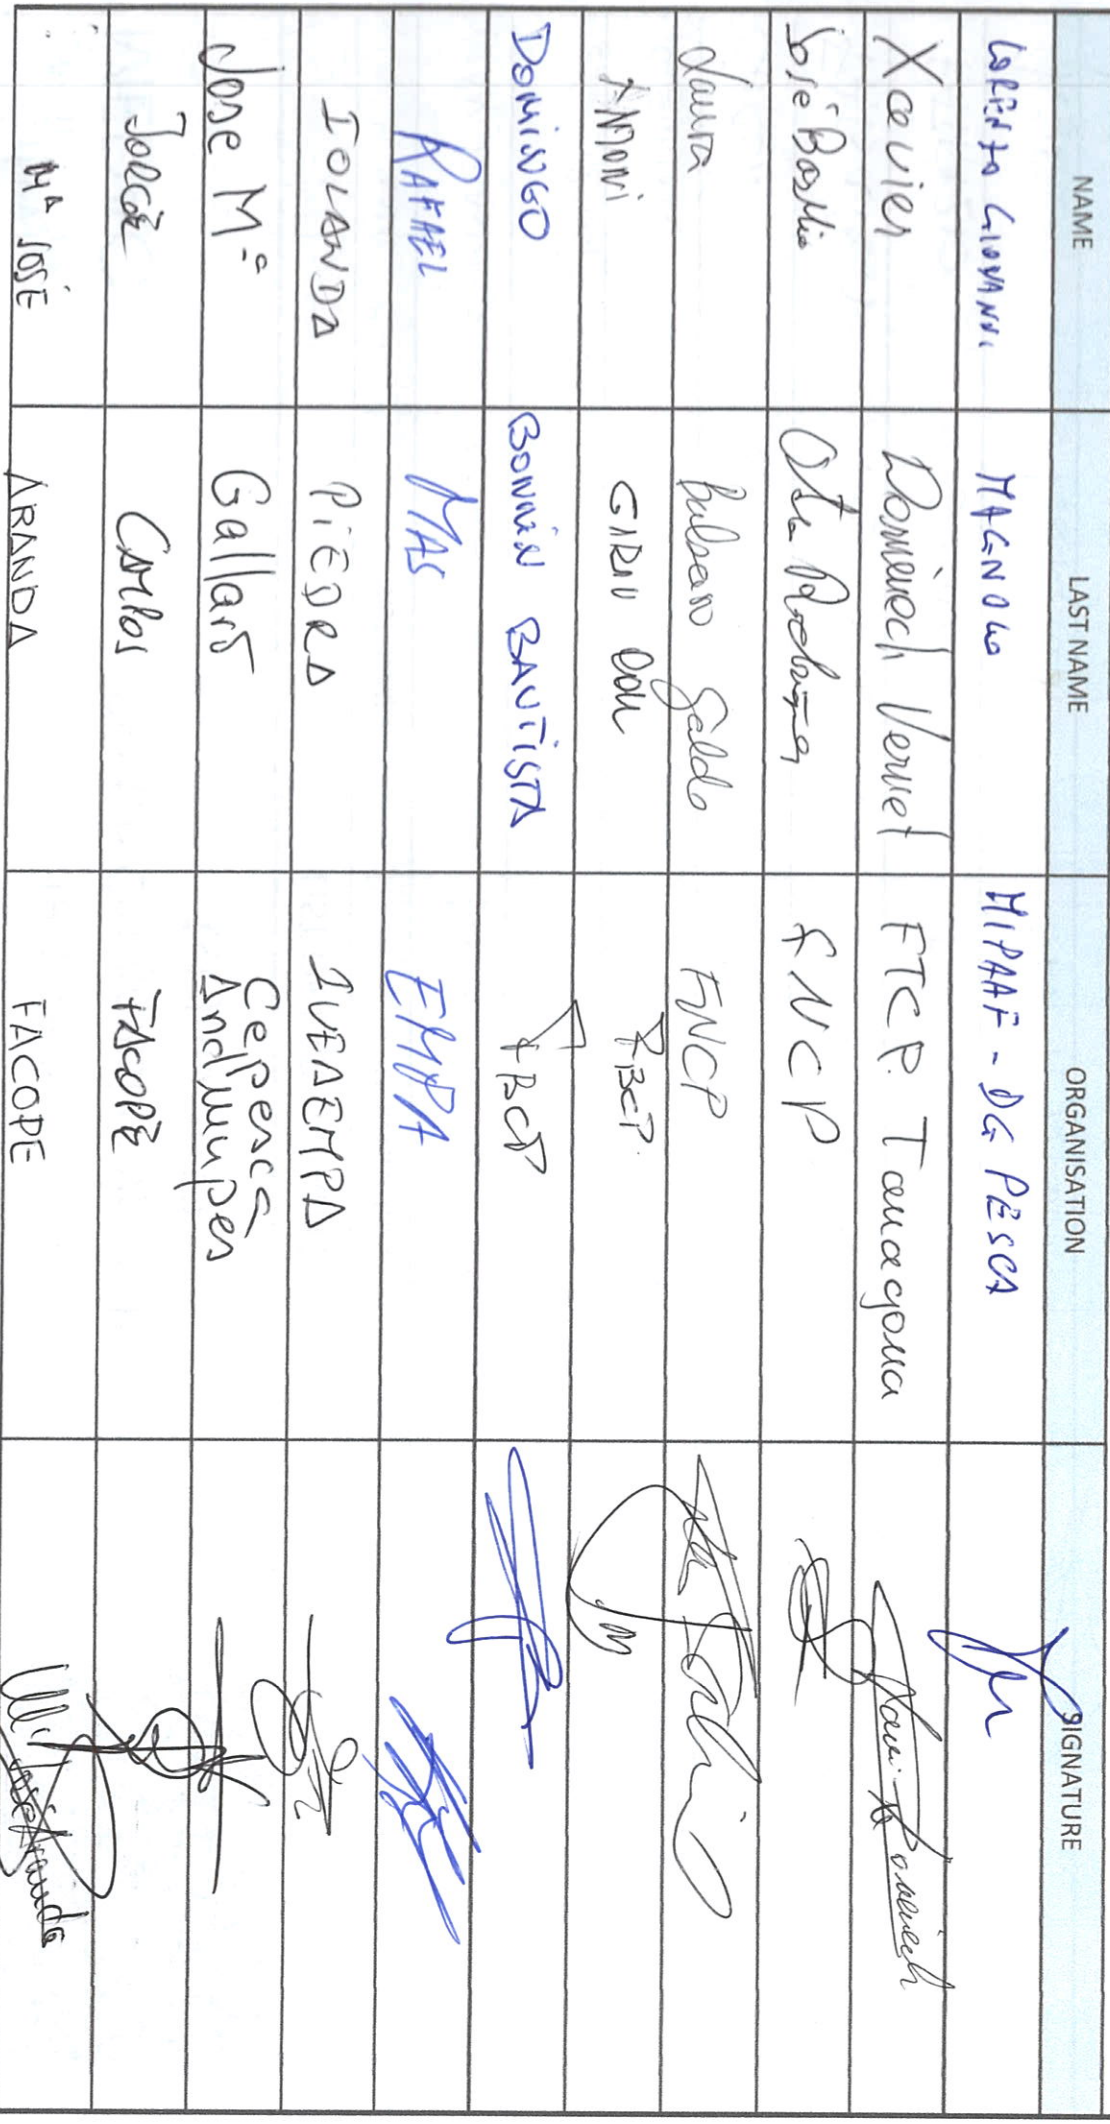 NAME LAST NAME ORGANISATION SIGNATURE
LORENZO GIOVANNI MAGNOLO MIPAAF - DG PESCA
Xavier Domènech Vernet FTCP. Tarragona Xavier Domènech
José Basilio Otero Rodríguez FNCP
Laura FNCP
ANTONI GARAU COLL FBCP.
DOMINGO BONNÍN BAUTISTA FBCP
RAFAEL MAS EMPA
IOLANDA PIEDRA IVEAEMPA
Jose Mª Gallart Cepesca
Andmupes
JORGE CAMPOS FACOPE
Mª JOSÉ ARANDA FACOPE Mª José Aranda